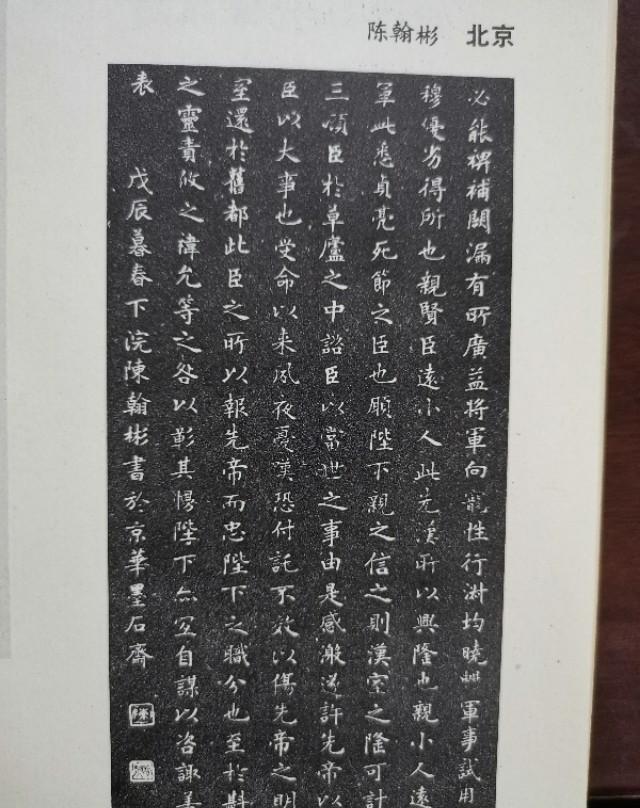 陈翰彬 北京
必能裨補闕漏有所廣益將軍向寵性行淑均曉暢軍事試用
穆優劣得所也親賢臣遠小人此先漢所以興隆也親小人遠
軍此悉貞亮死節之臣也願陛下親之信之則漢室之隆可計
三顧臣於草廬之中諮臣以當世之事由是感激遂許先帝以
臣以大事也受命以来夙夜憂嘆恐付託不效以傷先帝之明
室還於舊都此臣之所以報先帝而忠陛下之職分也至於斟
之靈責攸之禕允等之咎以彰其慢陛下亦宜自謀以咨諏善
表 戊辰暮春下浣陳翰彬書於京華墨石齋